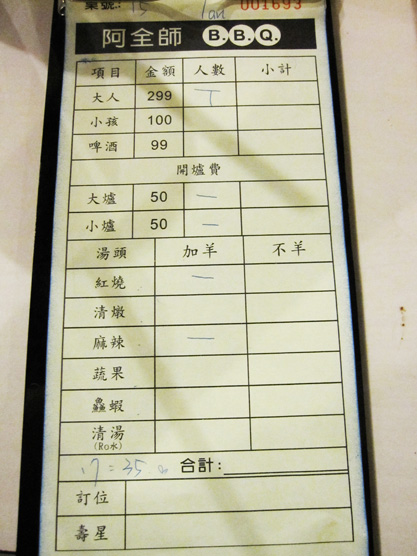 桌號: 15 001693
阿全師 B.B.Q.
項目 金額 人數 小計
大人 299 丅
小孩 100
啤酒 99
開爐費
大爐 50 一
小爐 50 一
湯頭 加羊 不羊
紅燒 一
清燉
麻辣 一
蔬果
鱻蝦
清湯
(Ro水)
17=35 合計:
訂位
壽星